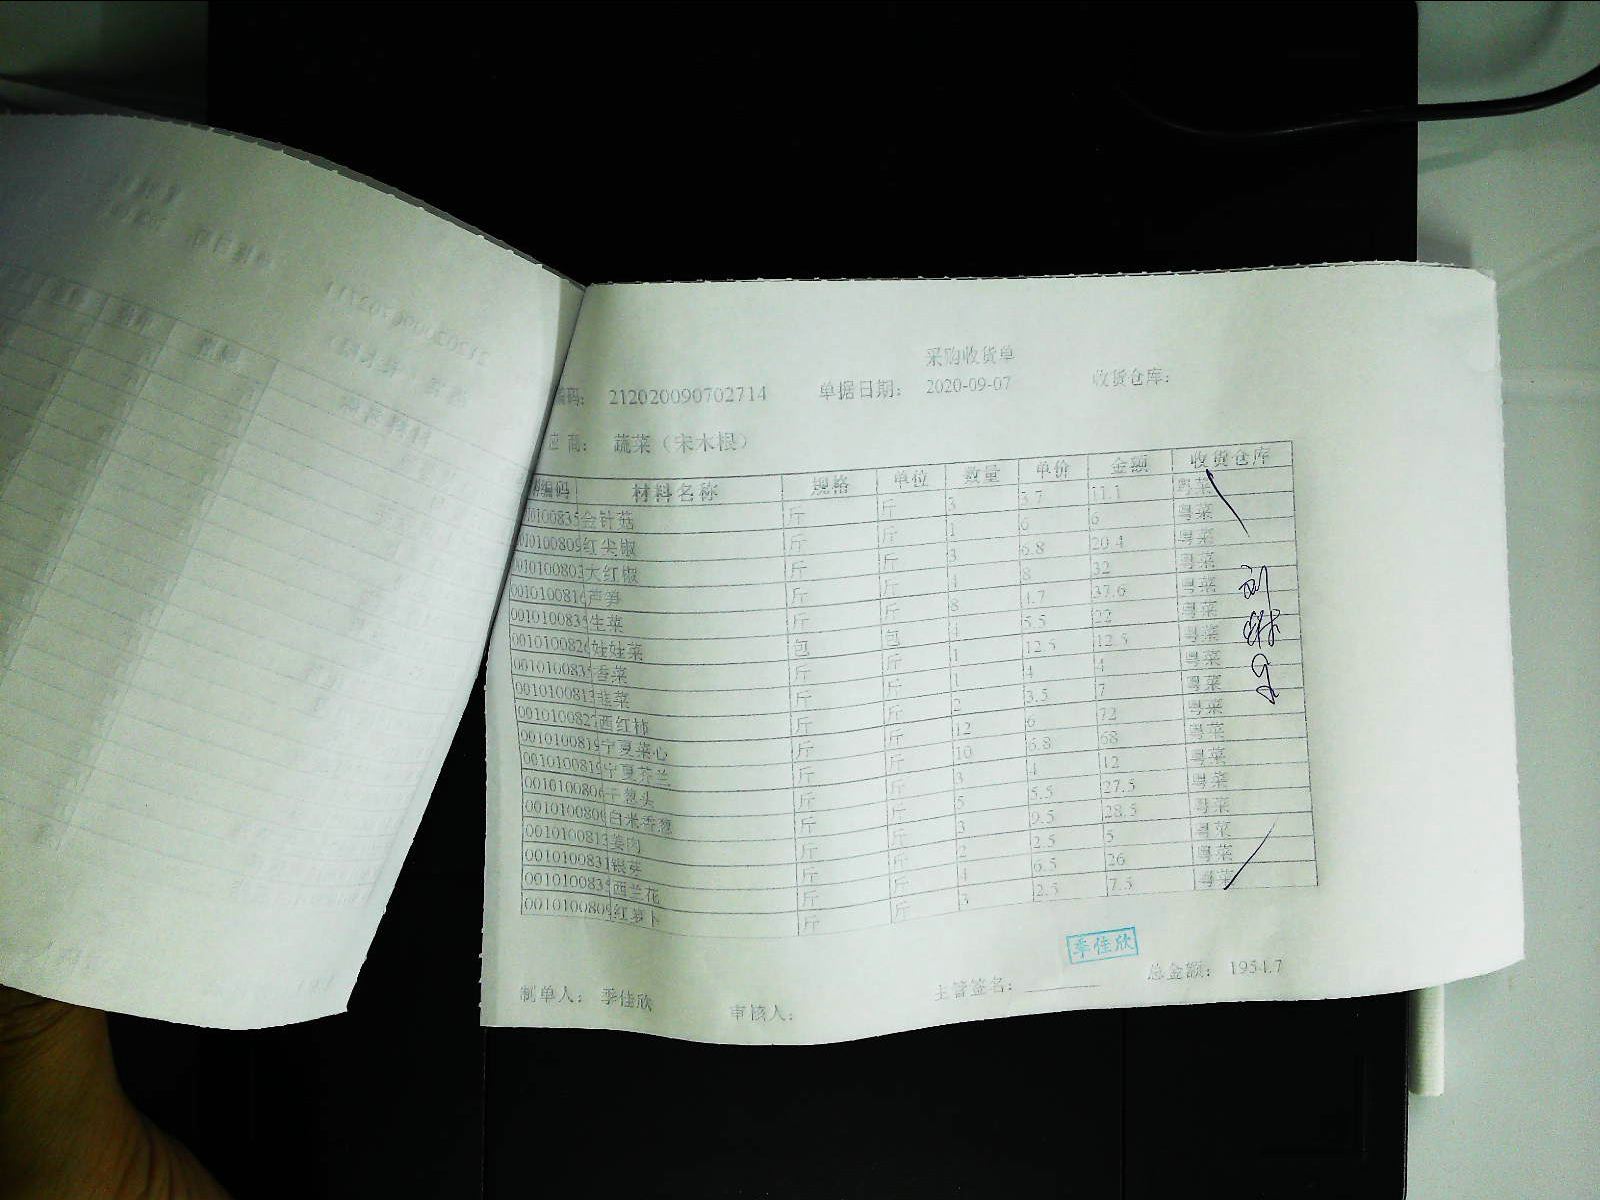 采购收货单
编码： 212020090702714 单据日期： 2020-09-07 收货仓库：
应 商： 蔬菜（宋木根）
编码 材料名称 规格 单位 数量 单价 金额 收货仓库
010100835 金针菇 斤 斤 3 3.7 11.1 粤菜
010100809 红尖椒 斤 斤 1 6 6 粤菜
0010100803 大红椒 斤 斤 3 6.8 20.4 粤菜
0010100816 芦笋 斤 斤 4 8 32 粤菜
0010100835 生菜 斤 斤 8 4.7 37.6 粤菜
0010100826 娃娃菜 包 包 4 5.5 22 粤菜
0010100835 香菜 斤 斤 1 12.5 12.5 粤菜
0010100813 韭菜 斤 斤 1 4 4 粤菜
0010100827 西红柿 斤 斤 2 3.5 7 粤菜
0010100819 宁夏菜心 斤 斤 12 6 72 粤菜
0010100819 宁夏芥兰 斤 斤 10 6.8 68 粤菜
0010100806 干葱头 斤 斤 3 4 12 粤菜
0010100800 白米香葱 斤 斤 5 5.5 27.5 粤菜
0010100813 姜肉 斤 斤 3 9.5 28.5 粤菜
0010100831 银芽 斤 斤 2 2.5 5 粤菜
0010100835 西兰花 斤 斤 4 6.5 26 粤菜
0010100809 红萝卜 斤 斤 3 2.5 7.5 粤菜
季佳欣
制单人： 季佳欣 审核人： 主管签名： 总金额： 1954.7